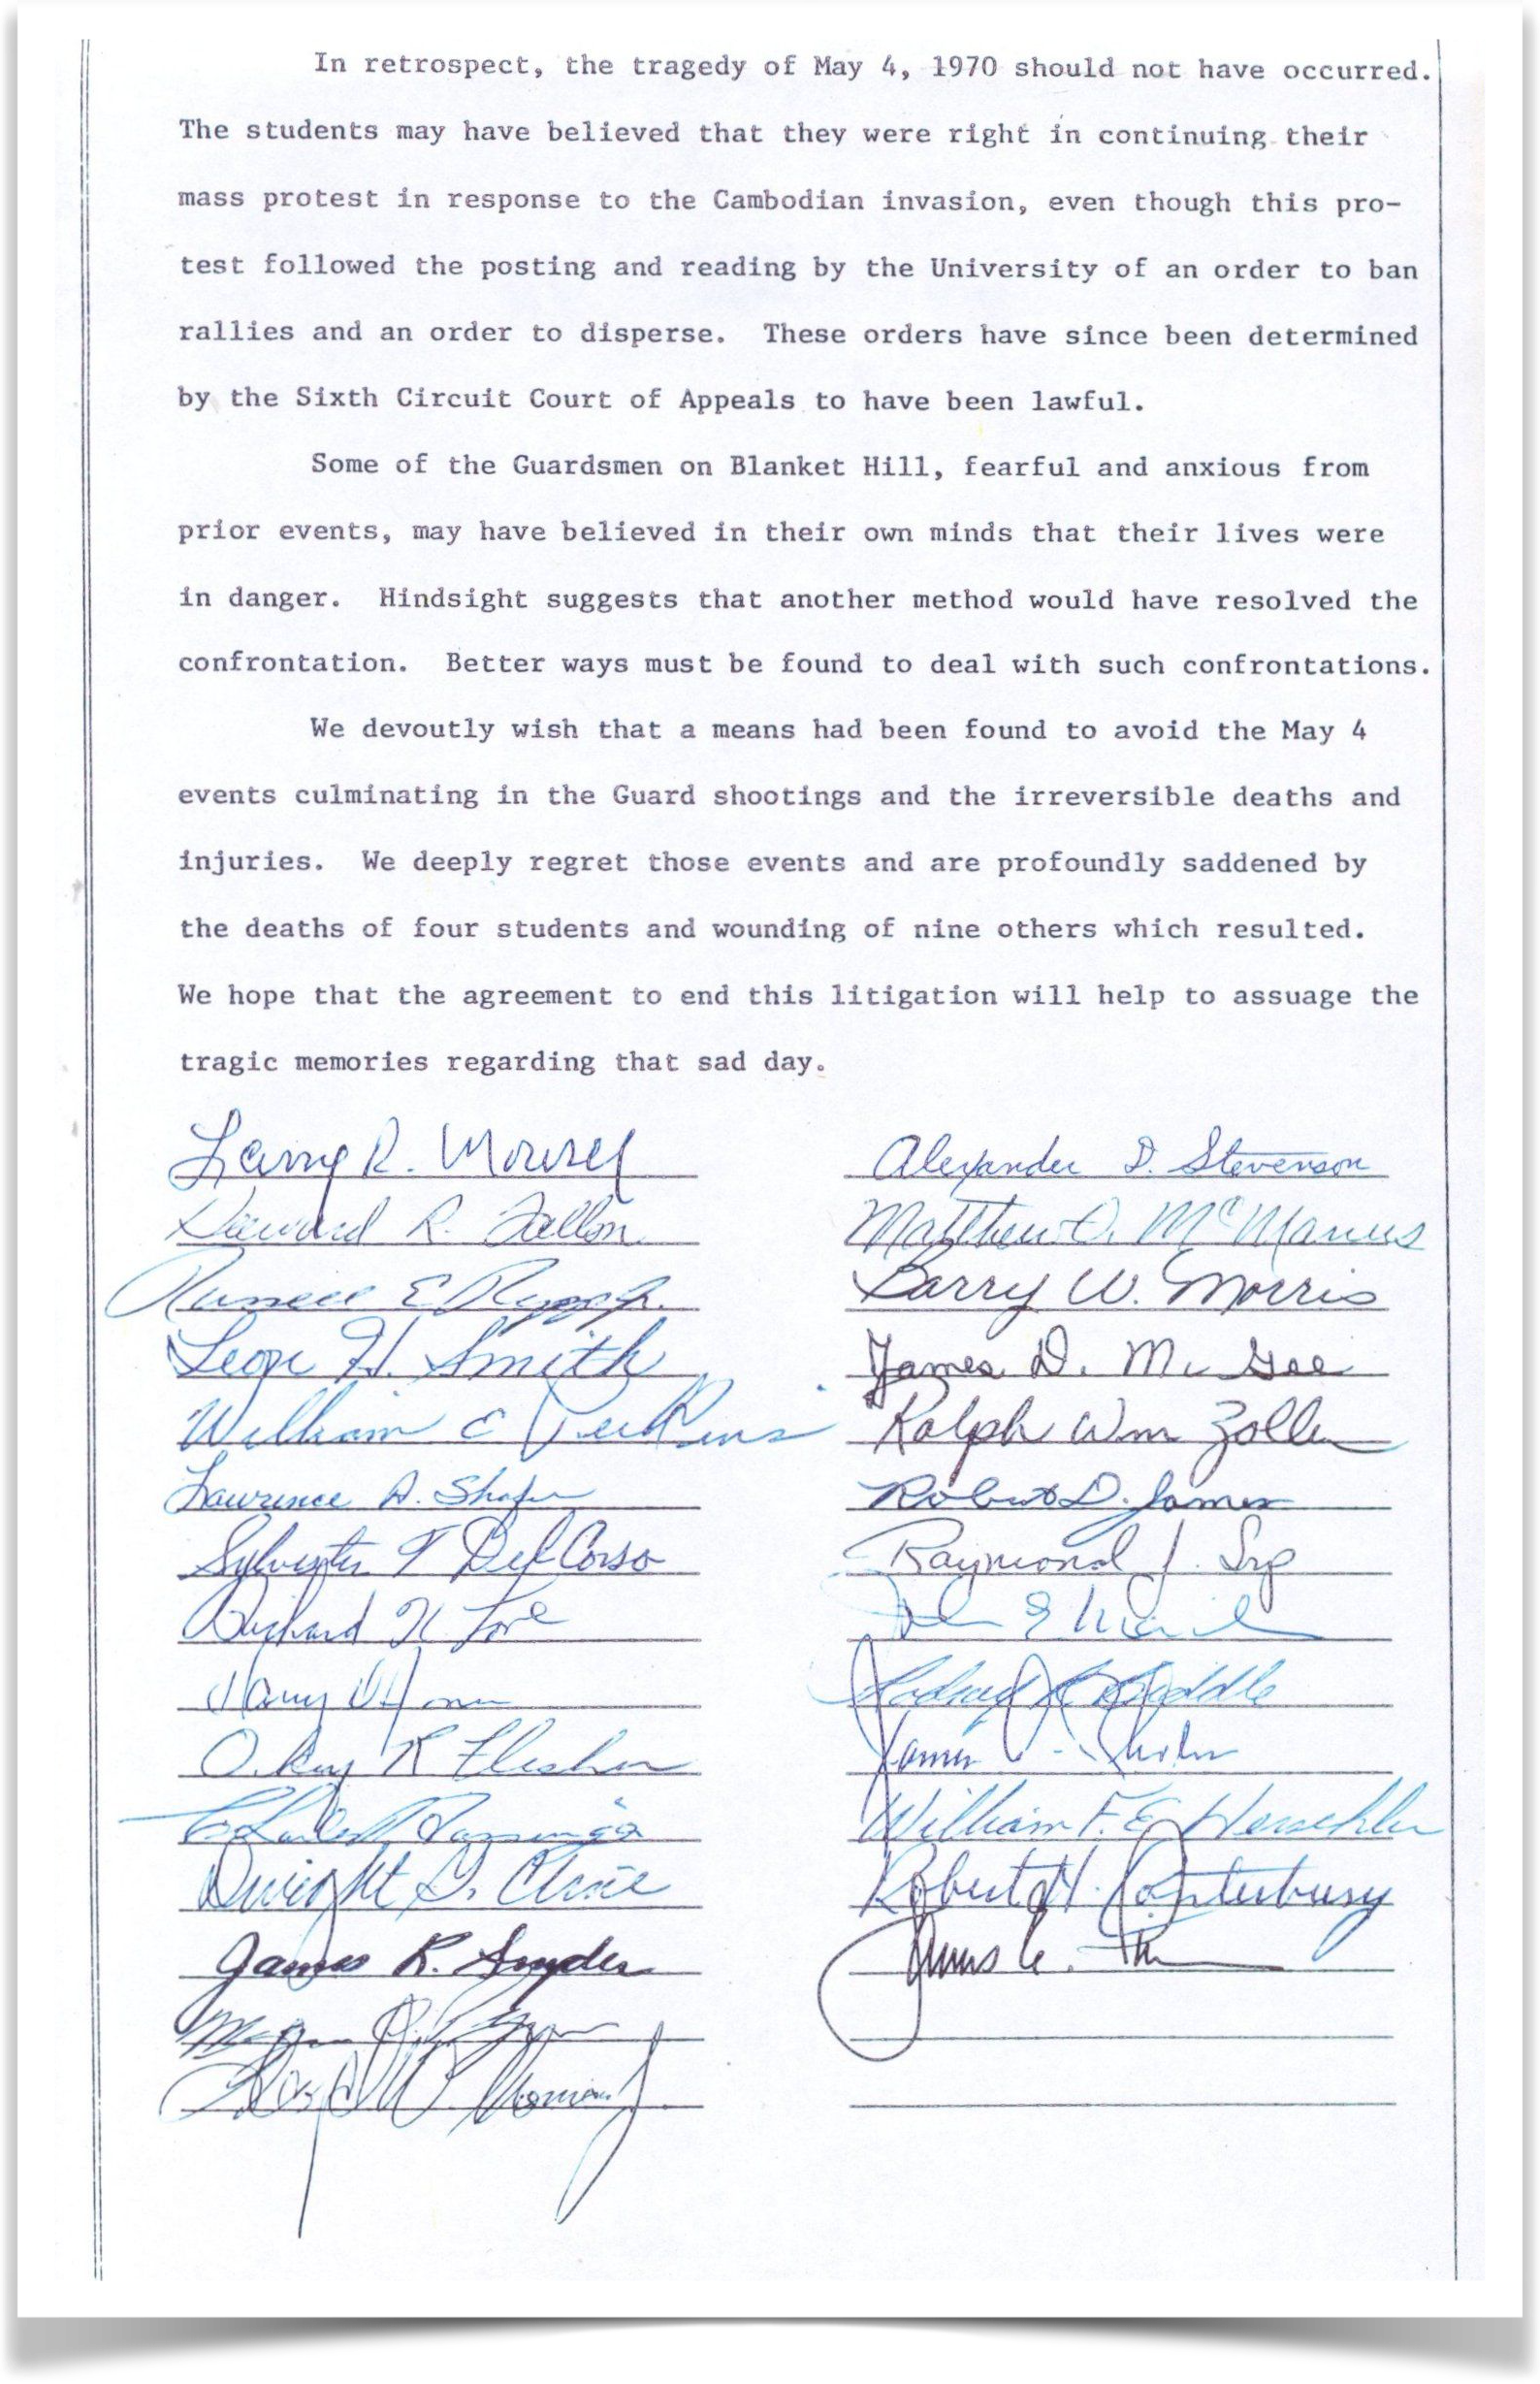 In retrospect, the tragedy of May 4, 1970 should not have occurred.
The students may have believed that they were right in continuing their
mass protest in response to the Cambodian invasion, even though this pro-
test followed the posting and reading by the University of an order to ban
rallies and an order to disperse. These orders have since been determined
by the Sixth Circuit Court of Appeals to have been lawful.
Some of the Guardsmen on Blanket Hill, fearful and anxious from
prior events, may have believed in their own minds that their lives were
in danger. Hindsight suggests that another method would have resolved the
confrontation. Better ways must be found to deal with such confrontations.
We devoutly wish that a means had been found to avoid the May 4
events culminating in the Guard shootings and the irreversible deaths and
injuries. We deeply regret those events and are profoundly saddened by
the deaths of four students and wounding of nine others which resulted.
We hope that the agreement to end this litigation will help to assuage the
tragic memories regarding that sad day.
Larry R. Mowrer
R. Fallon
E
Leon H. Smith
William E Perkins
Lawrence A. Shafer
Sylvester T Del Corso
Richard K Love
Harry D Jones
Okey R Flesher
Dwight G. Cline
James R. Snyder
Alexander D. Stevenson
Matthew J. McManus
Barry W. Morris
James D. McGee
Ralph Wm Zoller
Robert D. James
Raymond J. Srp
John E
James
William F. E. Herschler
Robert H. Canterbury
James A.